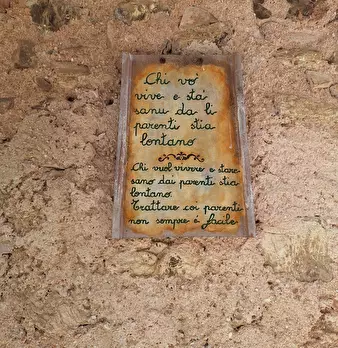 Chi vo'
vive e sta'
sanu da li
parenti stia
lontano
Chi vuol vivere e stare
sano dai parenti stia
lontano.
Trattare coi parenti
non sempre é facile